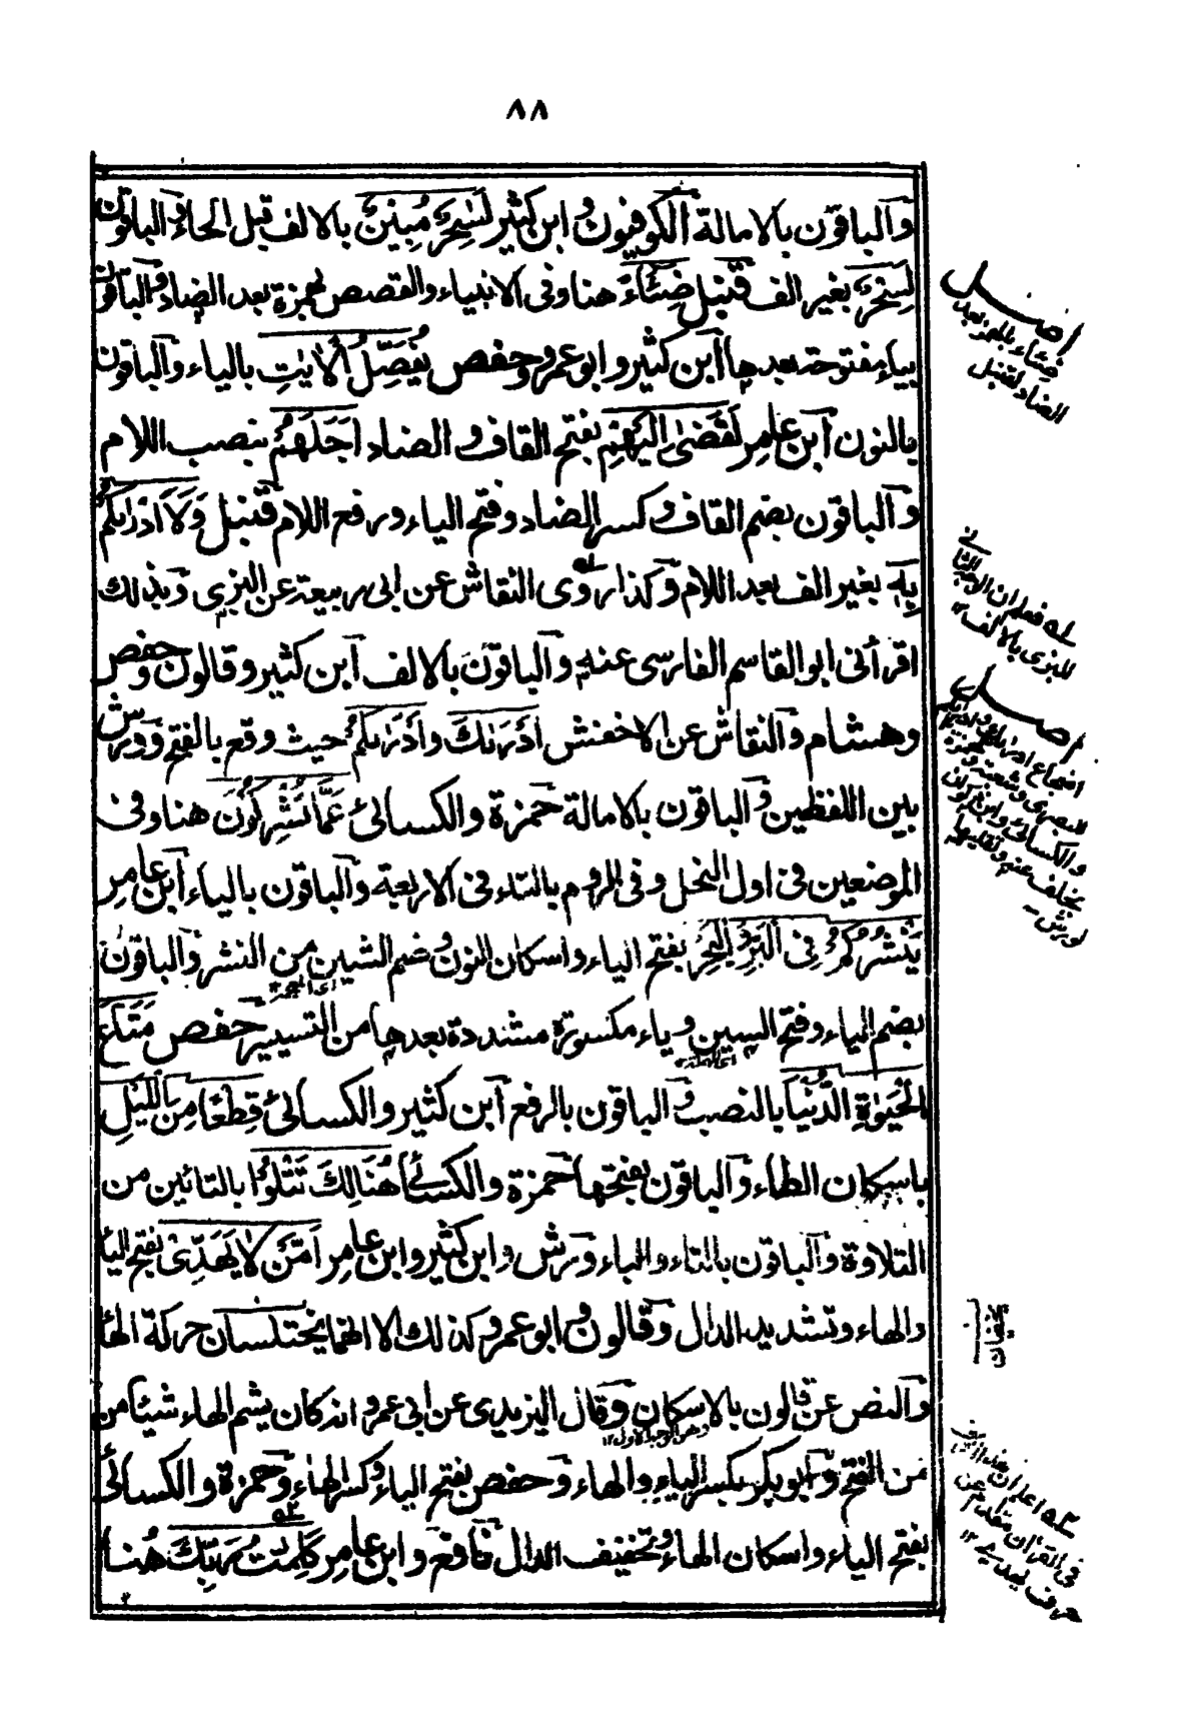 ٨٨
وآلباقون بالامالة آلكوفيون وابن كثير لَسٰحِرٌ مُبِيْنٌ بالالف قبل الحاء وآلباقون
لَسِحْرٌ بغير الف قنبل ضِئَآءً هنا وفى الانبياء والقصص بهمزة بعد الضاد وآلباقون
بياء مفتوحة بعدها آبن كثير وابو عمرو وحفص يُفَصِّلُ الْاٰيٰتِ بالياء وآلباقون
بالنون آبن عامر لَقَضٰى اِلَيْهِمْ بفتح القاف و الضاد اَجَلَهُمْ بنصب اللام
وآلباقون بضم القاف وكسر الضاد وفتح الياء ورفع اللام قنبل وَلَاَدْرٰىكُمْ
بِهٖ بغير الف بعد اللام وكذا روى النقاش عن ابى ربيعة عن البزى وبذلك
اقرأنى ابو القاسم الفارسى عنه وآلباقون بالالف آبن كثير وقالون وحفص
وهشام والنقاش عن الاخفش اَدْرٰىكَ واَدْرٰىكُمْ حيث وقع بالفتح وورش
بين اللفظين وآلباقون بالامالة حمزة والكسائى عَمَّا تُشْرِكُوْنَ هنا وفى
الموضعين فى اول النحل وفى الروم بالتاء فى الاربعة وآلباقون بالياء آبن عامر
يَنْشُرُكُمْ فِى الْبَرِّ وَالْبَحْرِ بفتح الياء واسكان النون وضم الشين من النشر وآلباقون
بضم الياء وفتح السين وياء مكسورة مشددة بعدها من التسيير حفص مَتَاعَ
الْحَيٰوةِ الدُّنْيَا بالنصب وآلباقون بالرفع آبن كثير والكسائى قِطْعًا مِنَ اللَّيْلِ
باسكان الطاء وآلباقون بفتحها حمزة والكسائى هُنَالِكَ تَتْلُوْا بالتائين من
التلاوة وآلباقون بالتاء والباء ورش وابن كثير وابن عامر اَمَّنْ لَا يَهَدِّىْ بفتح الياء
والهاء وتشديد الدال وقالون وابو عمرو كذلك الا انهما يختلسان حركة الهاء
وآلنص عن قالون بالاسكان وقال اليزيدى عن ابى عمرو انه كان يشم الهاء شيئا من
من الفتح وآبو بكر بكسر الياء والهاء وحفص بفتح الياء وكسر الهاء وحمزة والكسائى
بفتح الياء واسكان الهاء وتخفيف الدال نافع وابن عامر كَلِمٰتُ رَبِّكَ هُنا
اصل
ضئاء بالهمز بعد
الضاد لقنبل
للبزى بالالف ١٢
اصل
والكسائى وابن ذكوان
بخلف عنه وتقليلها
لورش
يخفيان